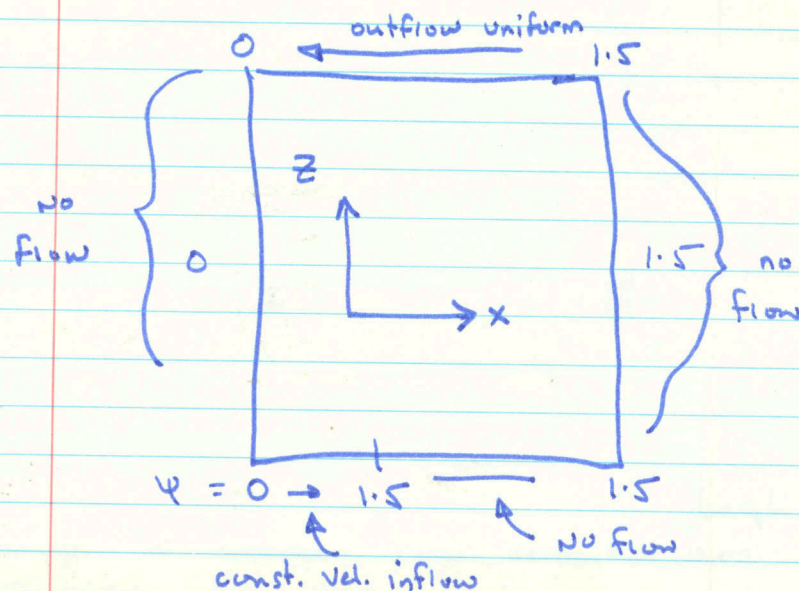 outflow uniform
0 ← 1.5
z
No
flow
0
1.5
no
flow
x
ψ = 0 → 1.5 1.5
No flow
const. vel. inflow